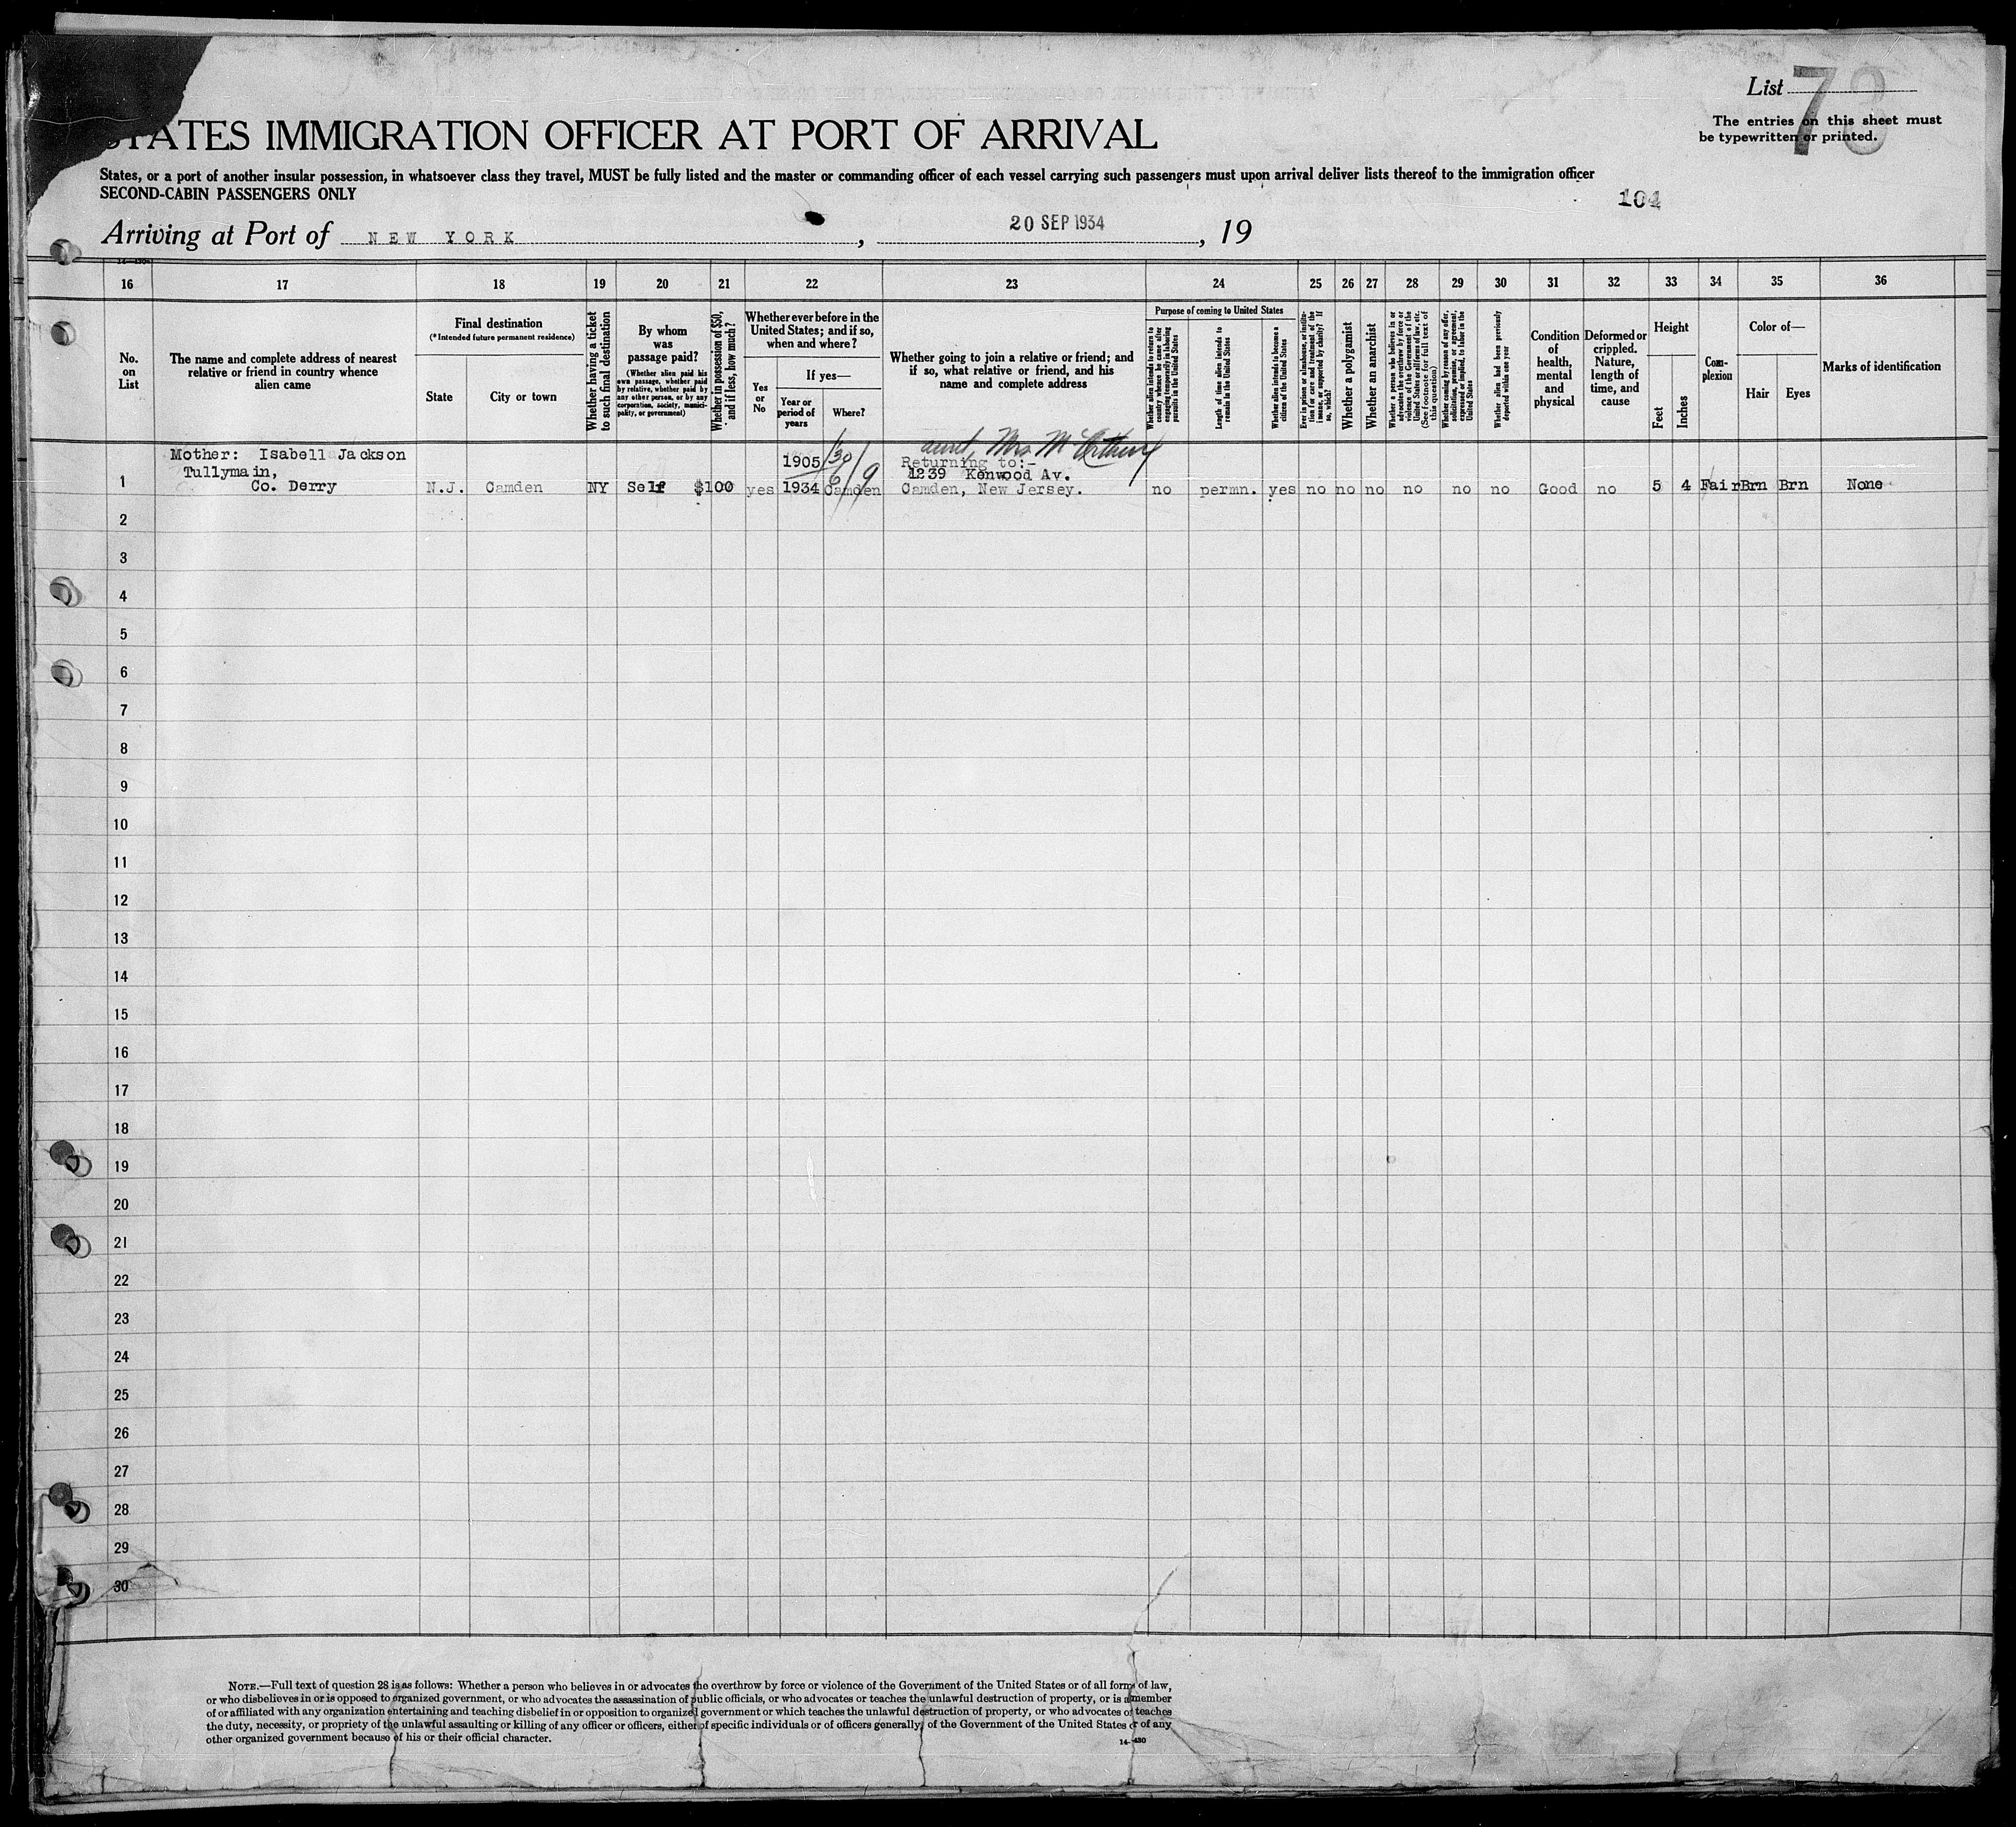 List 73
The entries on this sheet must
be typewritten or printed.
STATES IMMIGRATION OFFICER AT PORT OF ARRIVAL
States, or a port of another insular possession, in whatsoever class they travel, MUST be fully listed and the master or commanding officer of each vessel carrying such passengers must upon arrival deliver lists thereof to the immigration officer
SECOND-CABIN PASSENGERS ONLY
104
Arriving at Port of NEW YORK, 20 SEP 1934, 19
16 17 18 19 20 21 22 23 24 25 26 27 28 29 30 31 32 33 34 35 36
No. on List
The name and complete address of nearest
relative or friend in country whence
alien came
Final destination
(*Intended future permanent residence)
State
City or town
Whether having a ticket
to such final destination
By whom
was
passage paid?
(Whether alien paid his
own passage, whether paid
by relative, whether paid by
any other person, or by any
corporation, society, munici-
pality, or government)
Whether in possession of $50,
and if less, how much?
Whether ever before in the
United States; and if so,
when and where?
Yes
or
No
If yes—
Year or
period of
years
Where?
Whether going to join a relative or friend; and
if so, what relative or friend, and his
name and complete address
Purpose of coming to United States
Whether alien intends to return to
country whence he came after
engaging temporarily in laboring
pursuits in the United States
Length of time alien intends to
remain in the United States
Whether alien intends to become a
citizen of the United States
Ever in prison or almshouse, or institu-
tion for care and treatment of the
insane, or supported by charity? If
so, which?
Whether a polygamist
Whether an anarchist
Whether a person who believes in or
advocates the overthrow by force or
violence of the Government of the
United States or all forms of law, etc.
(See footnote for full text of
this question)
Whether coming by reason of any offer,
solicitation, promise, or agreement,
expressed or implied, to labor in the
United States
Whether alien had been previously
deported within one year
Condition
of
health,
mental
and
physical
Deformed or
crippled.
Nature,
length of
time, and
cause
Height
Feet
Inches
Com-
plexion
Color of—
Hair
Eyes
Marks of identification
aunt, Mrs McArthur
Mother: Isabell Jackson
Tullymain,
Co. Derry
1905 1/30
Returning to:-
1239 Kenwood Av.
1 N.J. Camden NY Self $100 yes 1934 Camden Camden, New Jersey. no permn. yes no no no no no no Good no 5 4 Fair Brn Brn None
2
3
4
5
6
7
8
9
10
11
12
13
14
15
16
17
18
19
20
21
22
23
24
25
26
27
28
29
30
NOTE.—Full text of question 28 is as follows: Whether a person who believes in or advocates the overthrow by force or violence of the Government of the United States or of all forms of law,
or who disbelieves in or is opposed to organized government, or who advocates the assassination of public officials, or who advocates or teaches the unlawful destruction of property, or is a member
of or affiliated with any organization entertaining and teaching disbelief in or opposition to organized government or which teaches the unlawful destruction of property, or who advocates or teaches
the duty, necessity, or propriety of the unlawful assaulting or killing of any officer or officers, either of specific individuals or of officers generally, of the Government of the United States or of any
other organized government because of his or their official character.
14-430